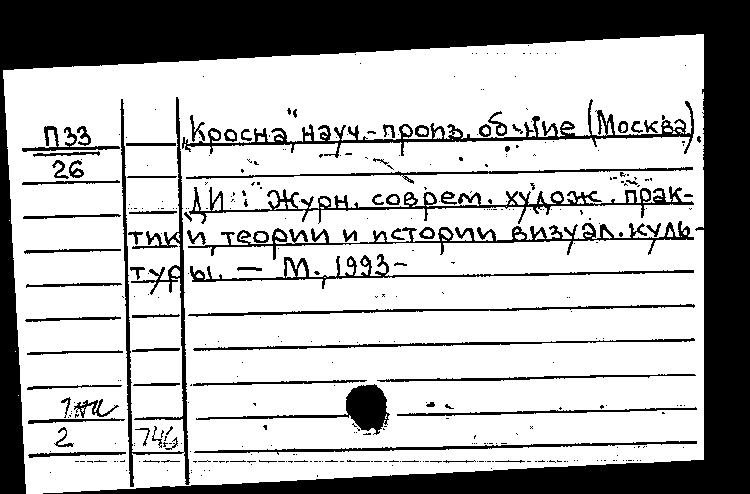 П33
26
„Кросна", науч.-произ. об-ние (Москва).
ДИ : Журн. соврем. худож. прак-
тики, теории и истории визуал. куль-
туры. — М., 1993-
2
746